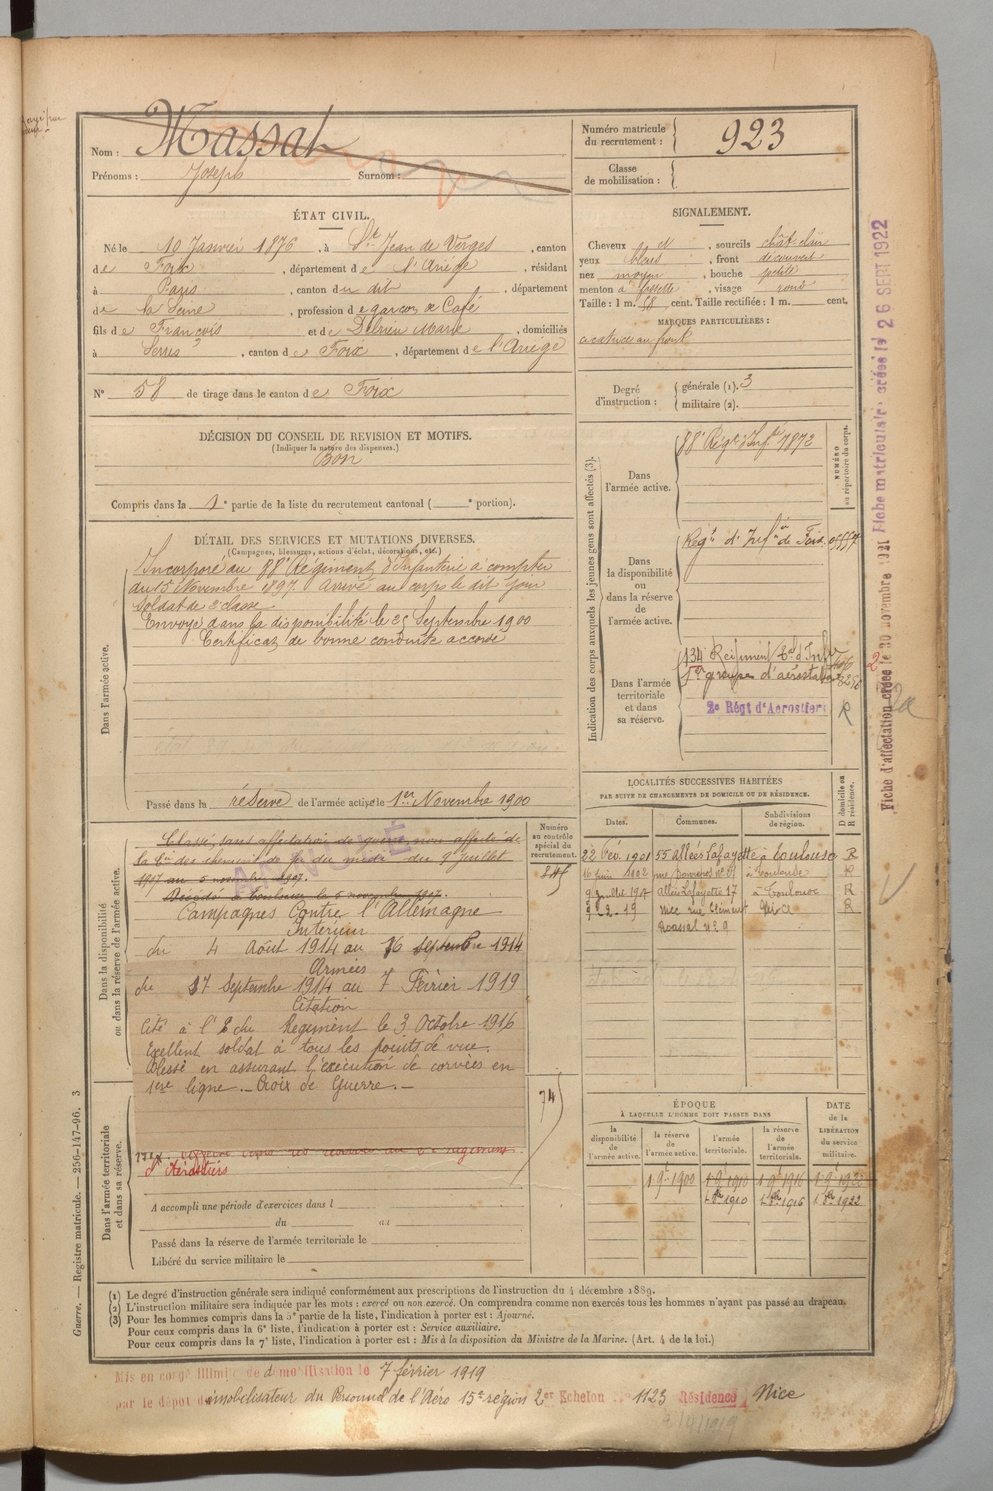 Nom : Massat
Prénoms : Joseph Surnom :
Numéro matricule du recrutement : 923
Classe de mobilisation :
ÉTAT CIVIL.
Né le 10 Janvier 1876, à St Jean de Verges, canton
de Foix, département de l'Ariège, résidant
à Paris, canton du dit, département
de la Seine, profession de garçon de Café
fils de François et de Delrieu Marie, domiciliés
à Serres, canton de Foix, département de l'Ariège
N° 58 de tirage dans le canton de Foix
SIGNALEMENT.
Cheveux d, sourcils chât. clair
yeux bleus, front découvert
nez moyen, bouche petite
menton à fossette, visage rond
Taille : 1 m. 58 cent. Taille rectifiée : 1 m. cent.
MARQUES PARTICULIÈRES :
cicatrice au front
Degré d'instruction : générale (1). 3
militaire (2).
DÉCISION DU CONSEIL DE REVISION ET MOTIFS.
(Indiquer la nature des dispenses.)
Bon
Compris dans la 1e partie de la liste du recrutement cantonal ( e portion).
DÉTAIL DES SERVICES ET MUTATIONS DIVERSES.
(Campagnes, blessures, actions d'éclat, décorations, etc.)
Dans l'armée active.
Incorporé au 88e Régiment d'Infanterie à compter
du 15 Novembre 1897. Arrivé au corps le dit jour
Soldat de 2e classe
Envoyé dans la disponibilité le Septembre 1900
Certificat de bonne conduite accordé
Passé dans la réserve de l'armée active le 1er Novembre 1900
Indication des corps auxquels les jeunes gens sont affectés (3).
NUMÉRO au répertoire du corps.
Dans l'armée active.
88e Régt d'Infie 1872
Dans la disponibilité ou dans la réserve de l'armée active.
Régt d'Infie de Foix
Dans l'armée territoriale et dans sa réserve.
134 Régiment Tal d'Infie
1er groupe d'aérostation
2e Régt d'Aerostiers R
Fiche d'affectation créée le 30 novembre 1921 Fiche matriculaire créée le 26 SEPT 1922
Dans la disponibilité ou dans la réserve de l'armée active.
Numéro au contrôle spécial du recrutement.
Classé sans affectation de guerre non affecté de
la Cie des chemins de fer du midi du 9 Juillet
1907 au 5 novembre 1907.
Décédé à Toulouse le 5 novembre 1907.
ANNULÉ
Campagnes Contre l'Allemagne
Intérieur
du 4 Août 1914 au 16 Septembre 1914
Armées
du 17 Septembre 1914 au 7 Février 1919
Citation
Cité à l'O du Régiment le 3 Octobre 1916
Exellent soldat à tous les points de vue.
Blessé en assurant l'exécution de corvées en
1ere ligne. - Croix de Guerre. -
74
LOCALITÉS SUCCESSIVES HABITÉES
PAR SUITE DE CHANGEMENTS DE DOMICILE OU DE RÉSIDENCE.
Dates. Communes. Subdivisions de région. D domicile ou R résidence.
22 Fév. 1901 55 Allées Lafayette à Toulouse R
16 Juin 1902 à Toulouse R
allées Lafayette 17 à Toulouse R
9-2-19 Nice rue Clément Nice R
Roassal N° 9
Dans l'armée territoriale et dans sa réserve.
d'Aérostiers
A accompli une période d'exercices dans l
du au
Passé dans la réserve de l'armée territoriale le
Libéré du service militaire le
ÉPOQUE
À LAQUELLE L'HOMME DOIT PASSER DANS
la disponibilité de l'armée active. la réserve de l'armée active. l'armée territoriale. la réserve de l'armée territoriale.
DATE de la LIBÉRATION du service militaire.
1 9e 1900 1 9e 1910 1 9e 1916 1 9e 1922
1 8bre 1910 1 8bre 1916 1 8bre 1922
(1) Le degré d'instruction générale sera indiqué conformément aux prescriptions de l'instruction du 4 décembre 1889.
(2) L'instruction militaire sera indiquée par les mots : exercé ou non exercé. On comprendra comme non exercés tous les hommes n'ayant pas passé au drapeau.
(3) Pour les hommes compris dans la 5e partie de la liste, l'indication à porter est : Ajourné.
Pour ceux compris dans la 6e liste, l'indication à porter est : Service auxiliaire.
Pour ceux compris dans la 7e liste, l'indication à porter est : Mis à la disposition du Ministre de la Marine. (Art. 4 de la loi.)
Guerre. — Registre matricule. — 256-147-96. 3
Mis en congé illimité de démobilisation le 7 février 1919
par le dépot démobilisateur du Personnel de l'Aéro 15e région 2er Echelon 1123 Résidence Nice